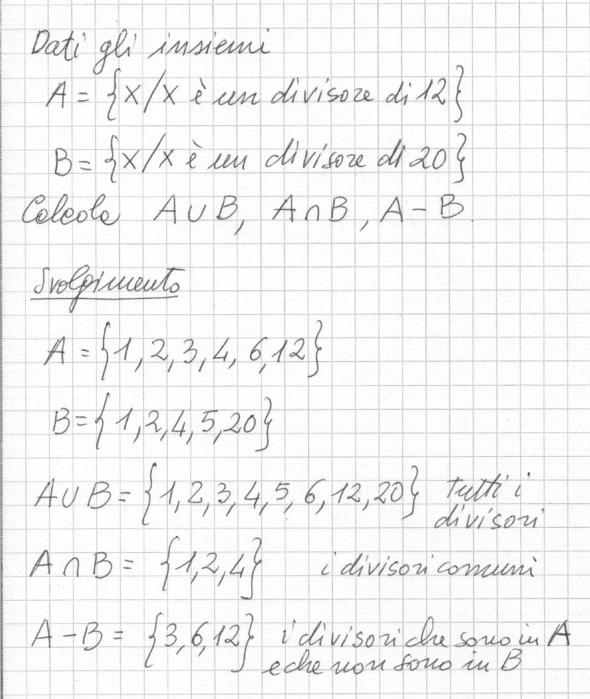 Dati gli insiemi
A = {x/x è un divisore di 12}
B = {x/x è un divisore di 20}
Calcola A ∪ B, A ∩ B, A - B.
Svolgimento
A = {1, 2, 3, 4, 6, 12}
B = {1, 2, 4, 5, 20}
A ∪ B = {1, 2, 3, 4, 5, 6, 12, 20} tutti i
divisori
A ∩ B = {1, 2, 4} i divisori comuni
A - B = {3, 6, 12} i divisori che sono in A
e che non sono in B